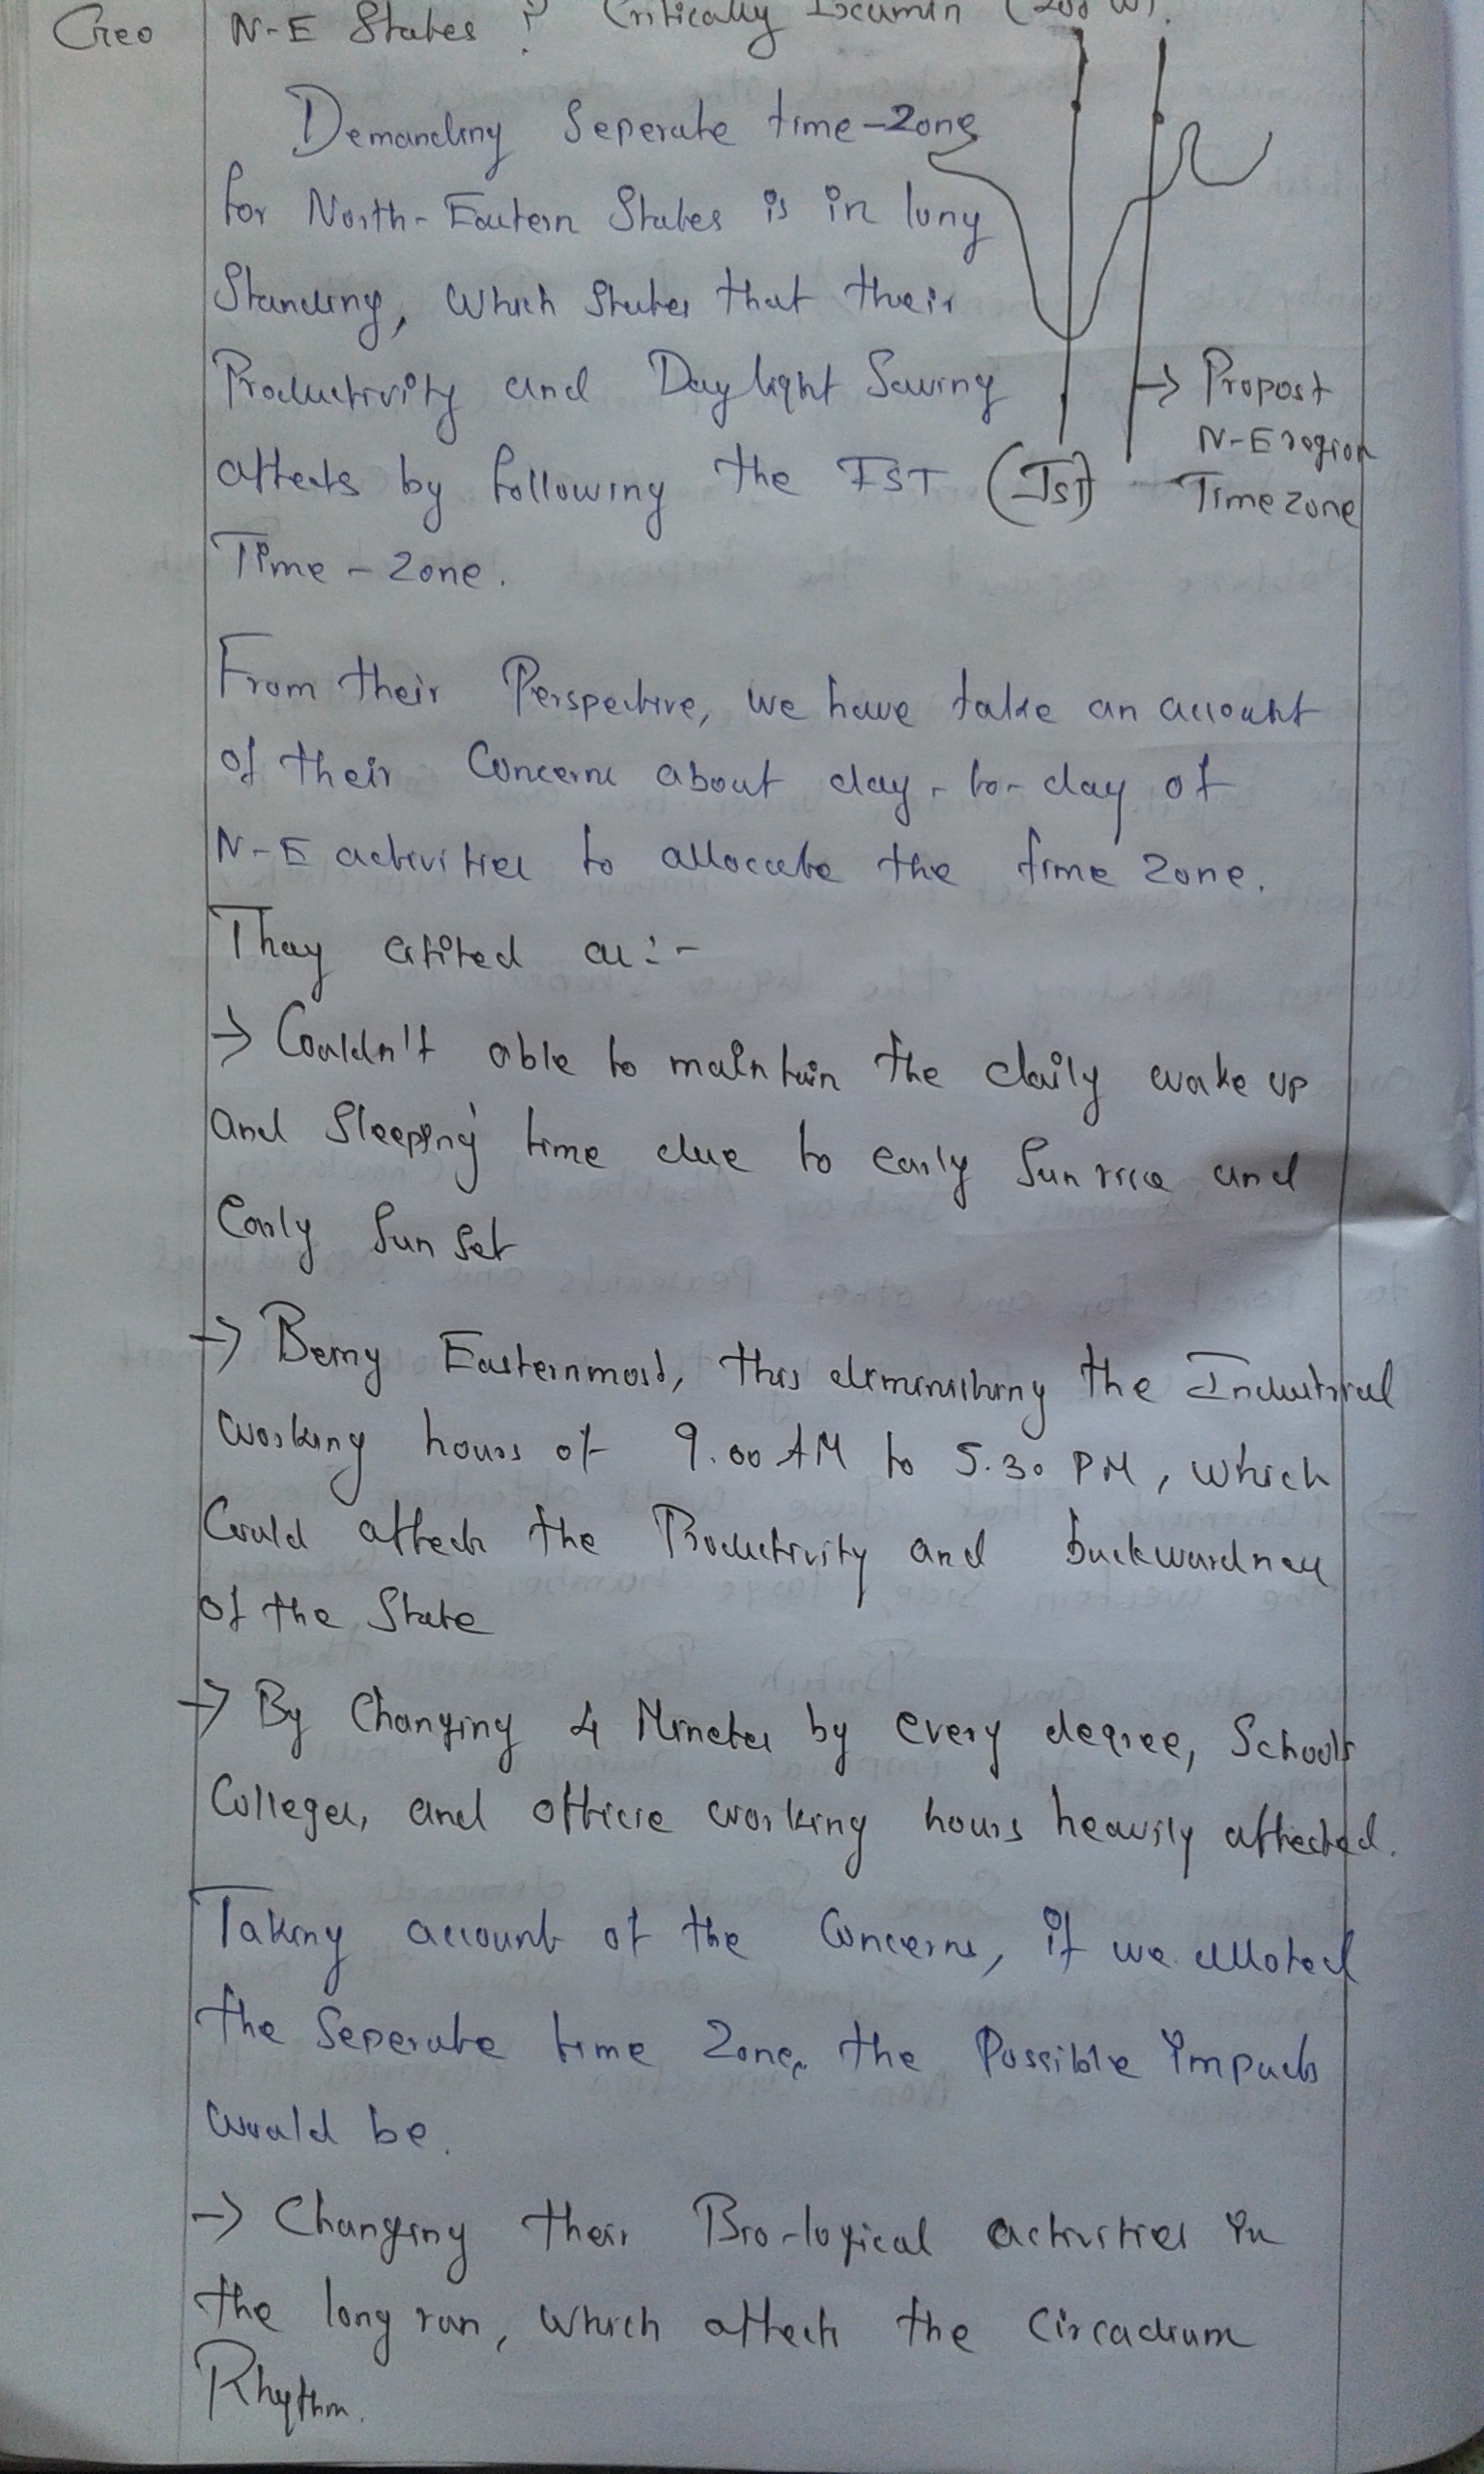 Geo
N-E States ? Critically Examin (200 W).
Demanding Seperate time-Zone
for North-Eastern States is in long
Standing, Which States that their
Productivity and Daylight Saving
affects by following the IST
Time-Zone.
(IST)
→ Propost
N-E region
Time zone
From their Perspective, we have take an account
of their Concerns about day-to-day of
N-E activities to allocate the time Zone.
Thay as:-
→ Couldn't able to maintain the daily wake up
and Sleeping time due to early Sunrise and
Early Sunset
→ Being Easternmost, this diminishing the Industrial
Working hours of 9.00 AM to 5.30 PM, Which
Could affects the Productivity and backwardness
of the State
→ By Changing 4 Minutes by every degree, Schools
Colleges, and officie working hours heavily affected.
Taking account of the Concerns, if we alloted
the Seperate time Zone, the Possible impacts
would be.
→ Changing their Bio-logical activities in
the long run, Which affects the Circadium
Rhythm.